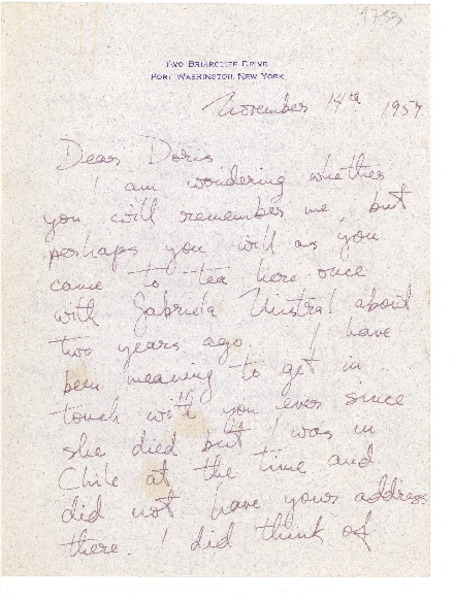 Two Briarcliff Drive
Port Washington, New York
November 14th 1957
Dear Doris
I am wondering whether
you will remember me, but
perhaps you will as you
came to tea here once
with Gabriela Mistral about
two years ago. I have
been meaning to get in
touch with you ever since
she died but I was in
Chile at the time and
did not have your address
there. I did think of